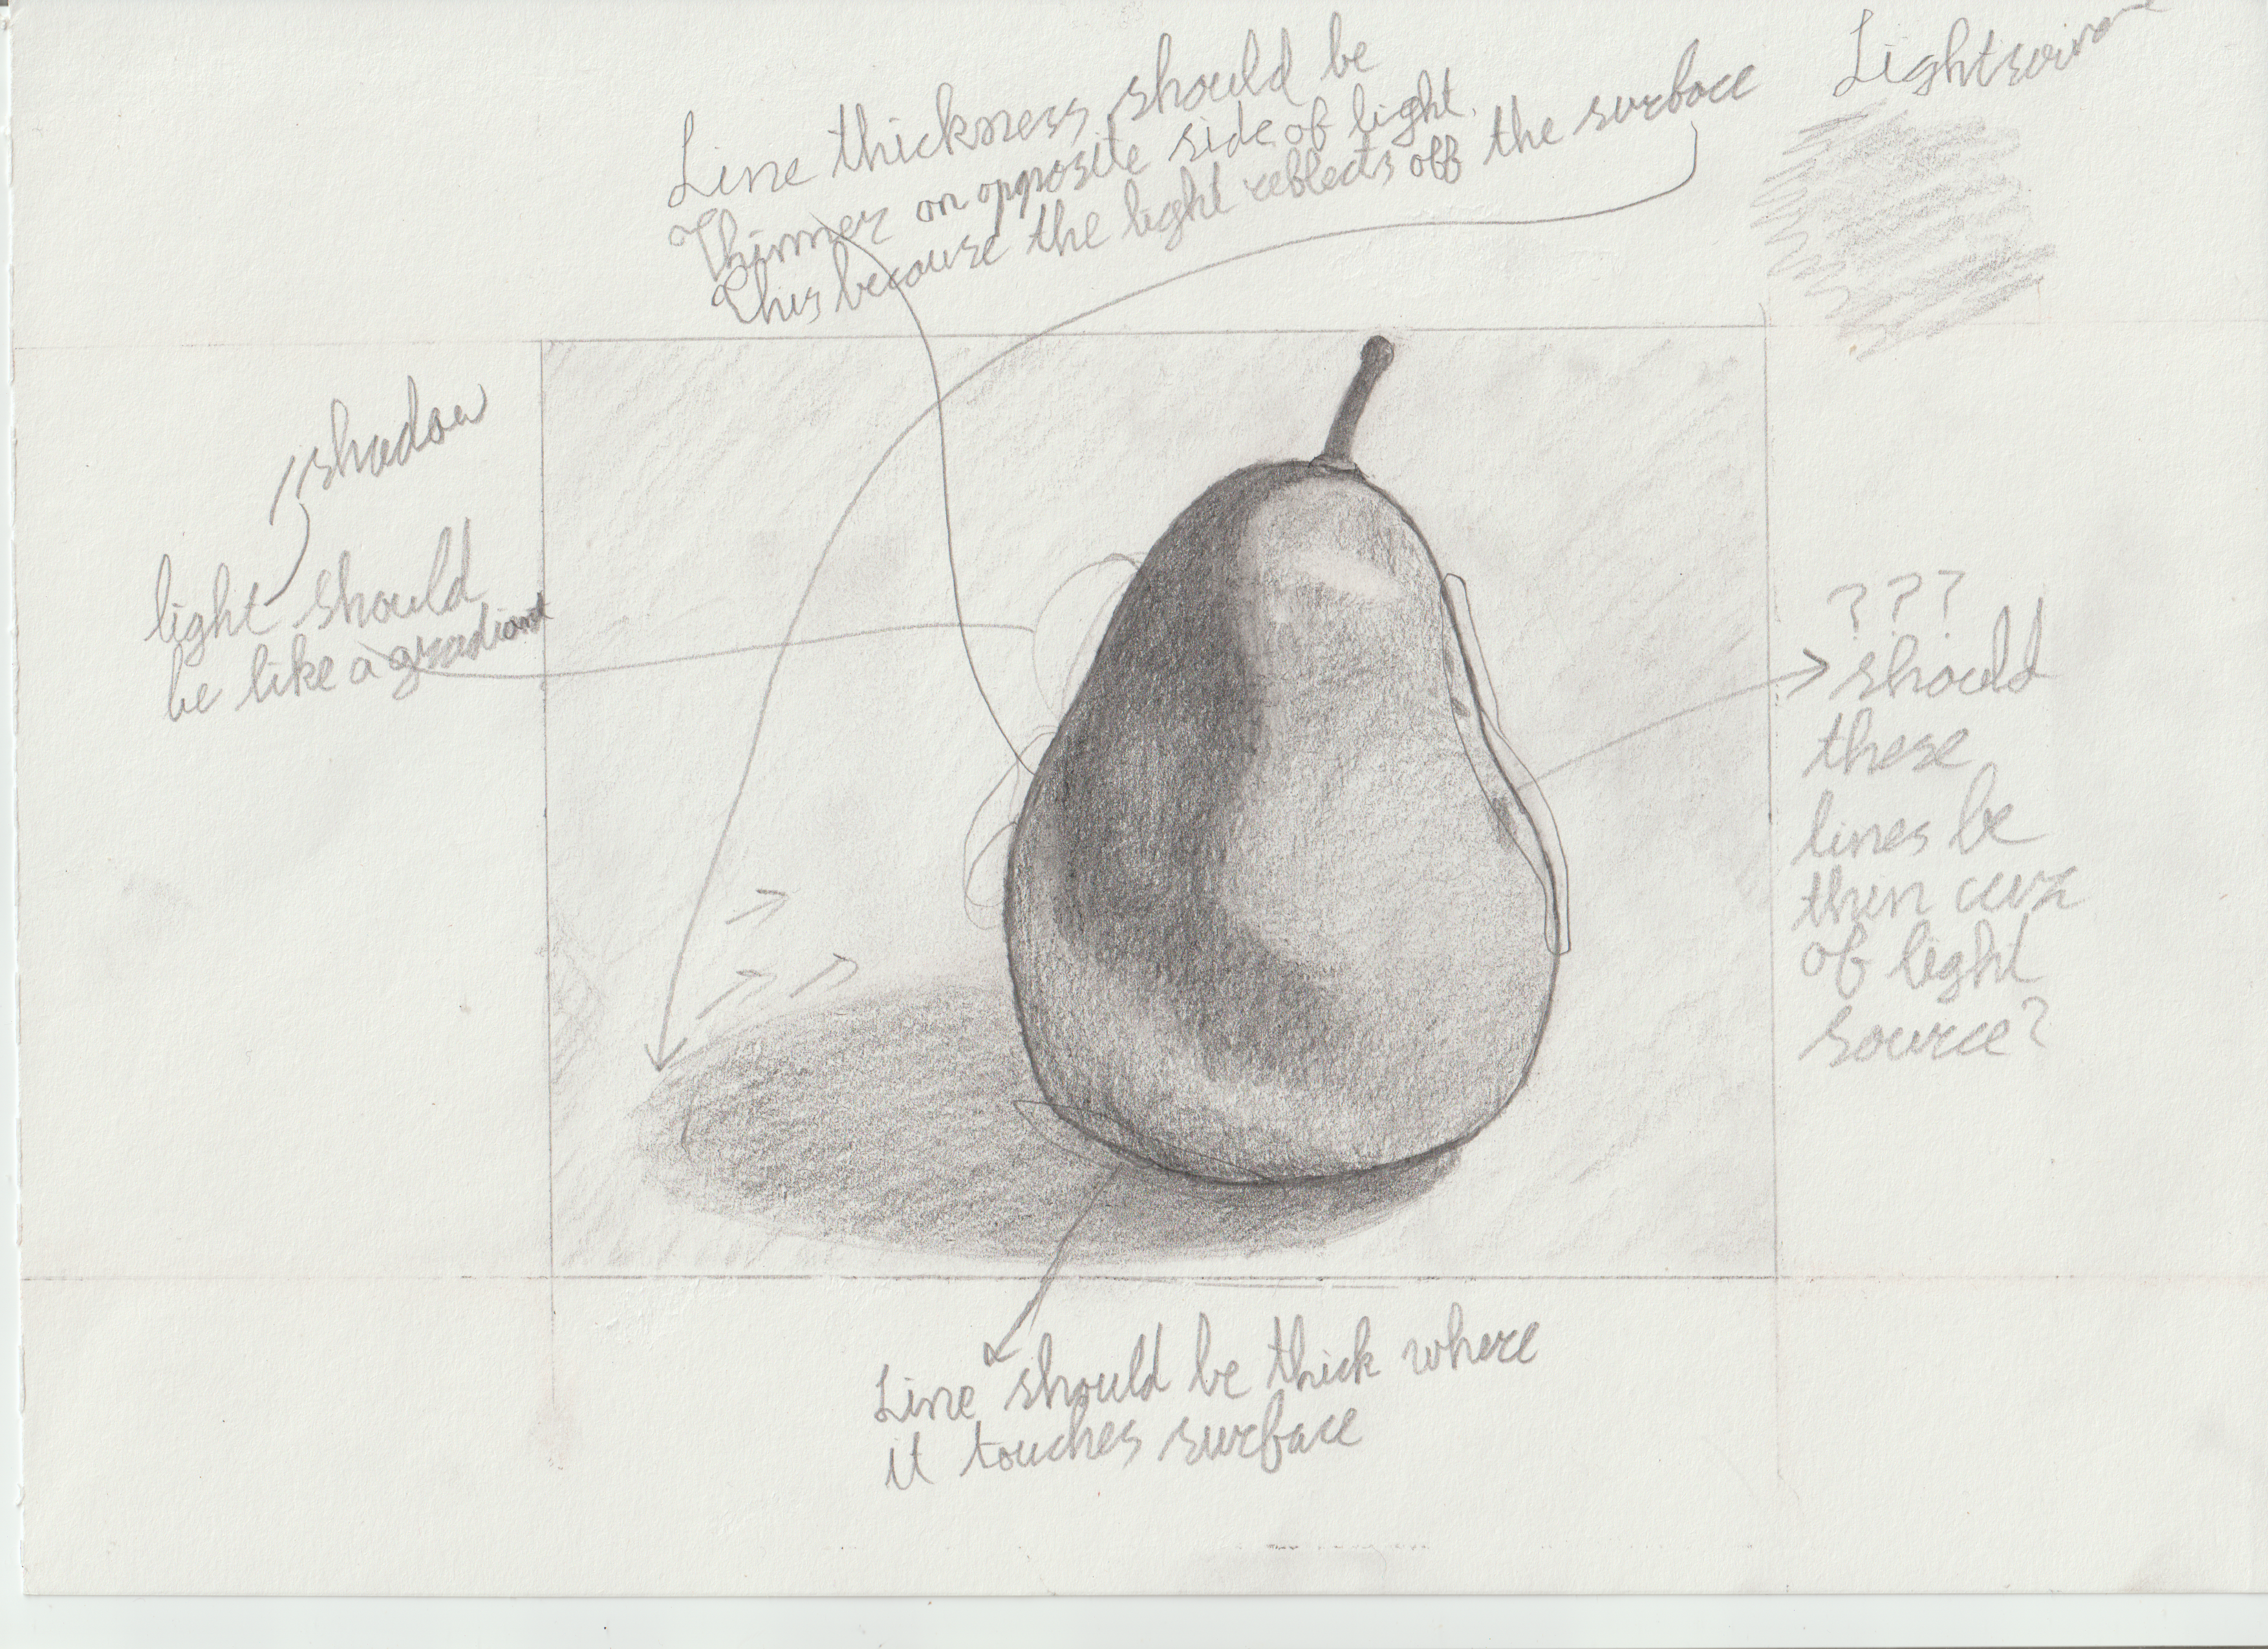 Line thickness should be
Thinner on opposite side of light.
This because the light reflects off the surface
shadow
light should
be like a gradiant
???
should
these
lines be
then cuz
of light
source?
Line should be thick where
it touches surface